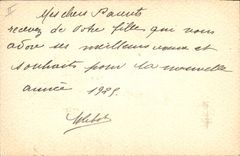 Mes chers Parents
recevez de votre fille que vous
adore ses meilleurs vœux et
souhaits pour la nouvelle
année 1925.